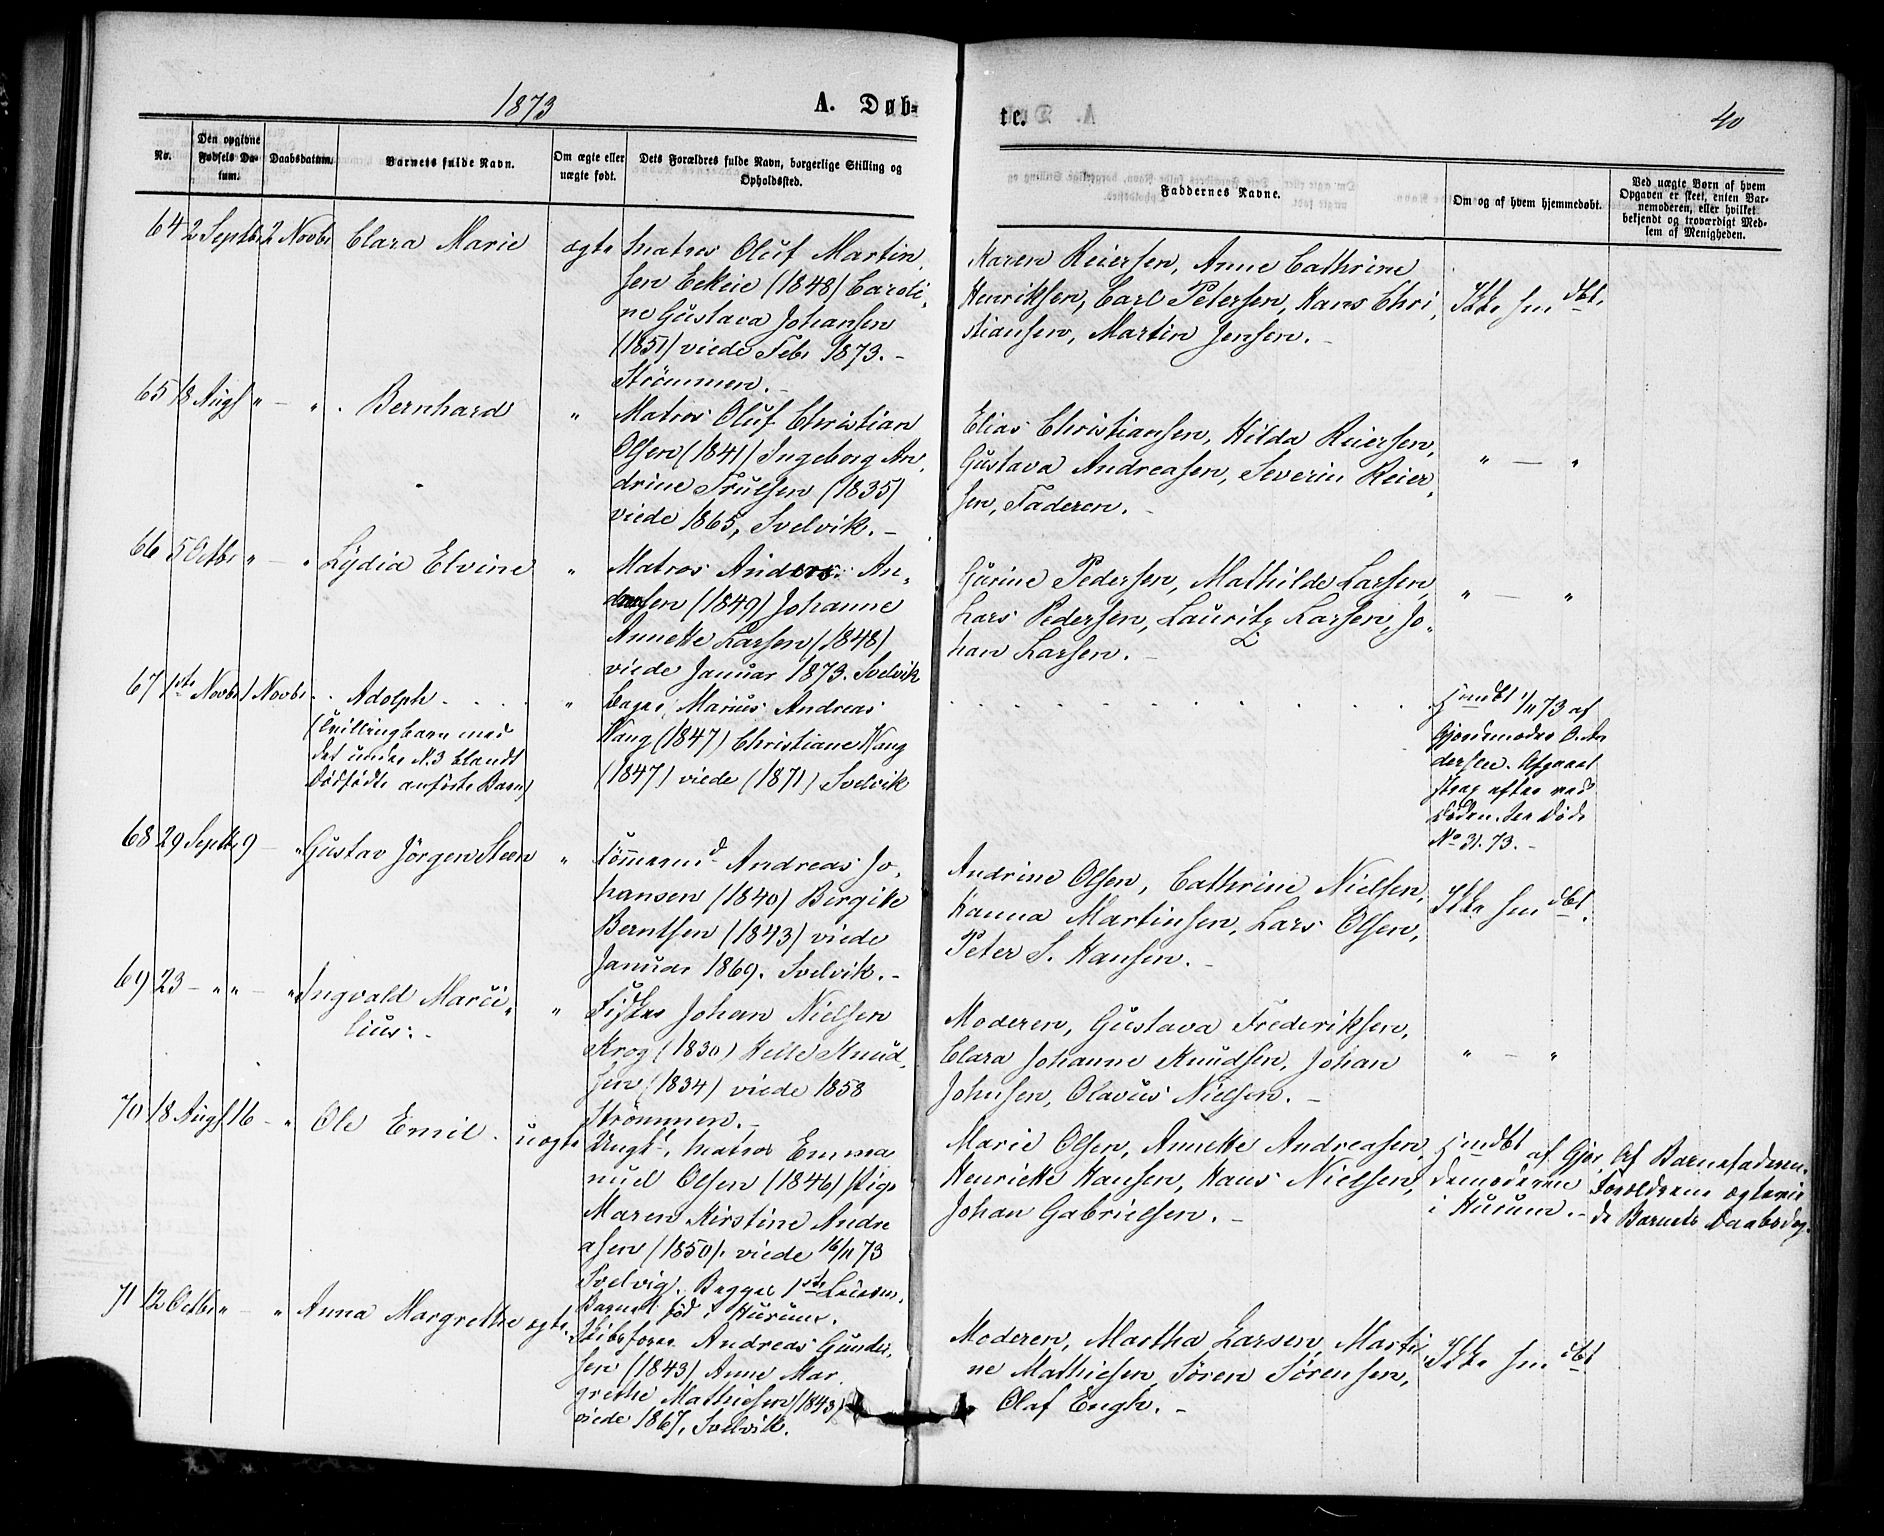 1873
A. Døb-
te.
40
No.
Den opgivne
Fødsels Da-
tum.
Daabsdatum.
Barnets fulde Navn.
Om ægte eller
uægte født.
Dets Forældres fulde Navn, borgerlige Stilling og
Opholdssted.
Faddernes Navne.
Om og af hvem hjemmedøbt.
Ved uægte Børn af hvem
Opgaven er skeet, enten Bar-
nemoderen, eller hvilket
bekjendt og troværdigt Med-
lem af Menigheden.
64 2 Septbr 2 Novbr Clara Marie ægte Matros Oluf Martin
sen Eekeie (1848) Caroli,
ne Gustava Johansen
(1851) viede Febr 1873. –
Strömmen. –
Karen Reiersen, Anne Cathrine
Henriksen, Carl Petersen, Hans Chri,
stiansen, Martin Jensen. –
Ikke hmdbt.
65 18 Augs " – " . Bernhard " Matros Oluf Christian
Olsen (1841) Ingeborg An,
drine Trulsen (1835)
viede 1865, Svelvik. –
Elias Christiansen, Hilda Reiersen,
Gustava Andreasen, Severin Reier,
sen, Faderen. –
" — "
66 5 Octbr " – " Lydia Elvine " Matros Anders An,
dersen (1849) Johanne
Annette Larsen (1848)
viede Januar 1873. Svelvik
Gurine Pedersen, Mathilde Larsen,
Lars Pedersen, Lauritz Larsen, Jo,
han Larsen. –
" — "
67 1ste Novbr 1 Novbr . . Adolph . . . . " Marius Andreas
(Tvillingbarn med
det under N.3 blandt
Dødfødte anførte Barn)
Wang (1847) Christiane Wang
(1847) viede (1871) Svelvik
Hjmdbt 1/11 73 af
Gjordemoder
dersen. Afgaaet
strax efter ved
Døden. See Døde
No 31. 73. –
68 29 Septbr 9 – " Gustav Jörgen Steen " Tömmermd Andreas Jo,
hansen (1840) Birgitte
Berntsen (1843) viede
Januar 1869. Svelvik. –
Andrine Olsen, Cathrine Nielsen,
Hanna Martinsen, Lars Olsen,
Peter S. Hansen. –
Ikke hmdbt.
69 23 – " " – " Ingvald Marci,
lius. –
" Fisker Johan Nielsen
Krog (1830) Helle Knud,
sen (1834) viede 1858
Strömmen. –
Moderen, Gustava Frederiksen,
Clara Johanne Knudsen, Johan
Johnsen, Olavus Nielsen. –
" — "
70 18 Augs 16 – " Ole Emil . uægte Ungk. Matros Emma
nuel Olsen (1846) Pige
Maren Kirstine Andre
asen (1850). viede 16/11 73
Svelvig. Begges 1ste Leierm.
Barnet fød i Hurum.
Marie Olsen, Annette Andreasen,
Henriette Hansen, Hans Nielsen,
Johan Gabrielsen. –
Hjmdbt af Gjor
demoderen
i Hurum. –
Af Barnefaderen.
Forældrene ægtevie
de Barnets Daabsdag.
71 12 Octbr " – " Anna Margrethe ægte Skibsförer Andreas Gunder,
sen (1843) Anne Mar,
grethe Mathiesen (1843)
viede 1867, Svelvik.
Moderen, Martha Larsen, Marti
ne Mathiesen, Sören Sörensen,
Olaf Engh. –
Ikke hmdbt